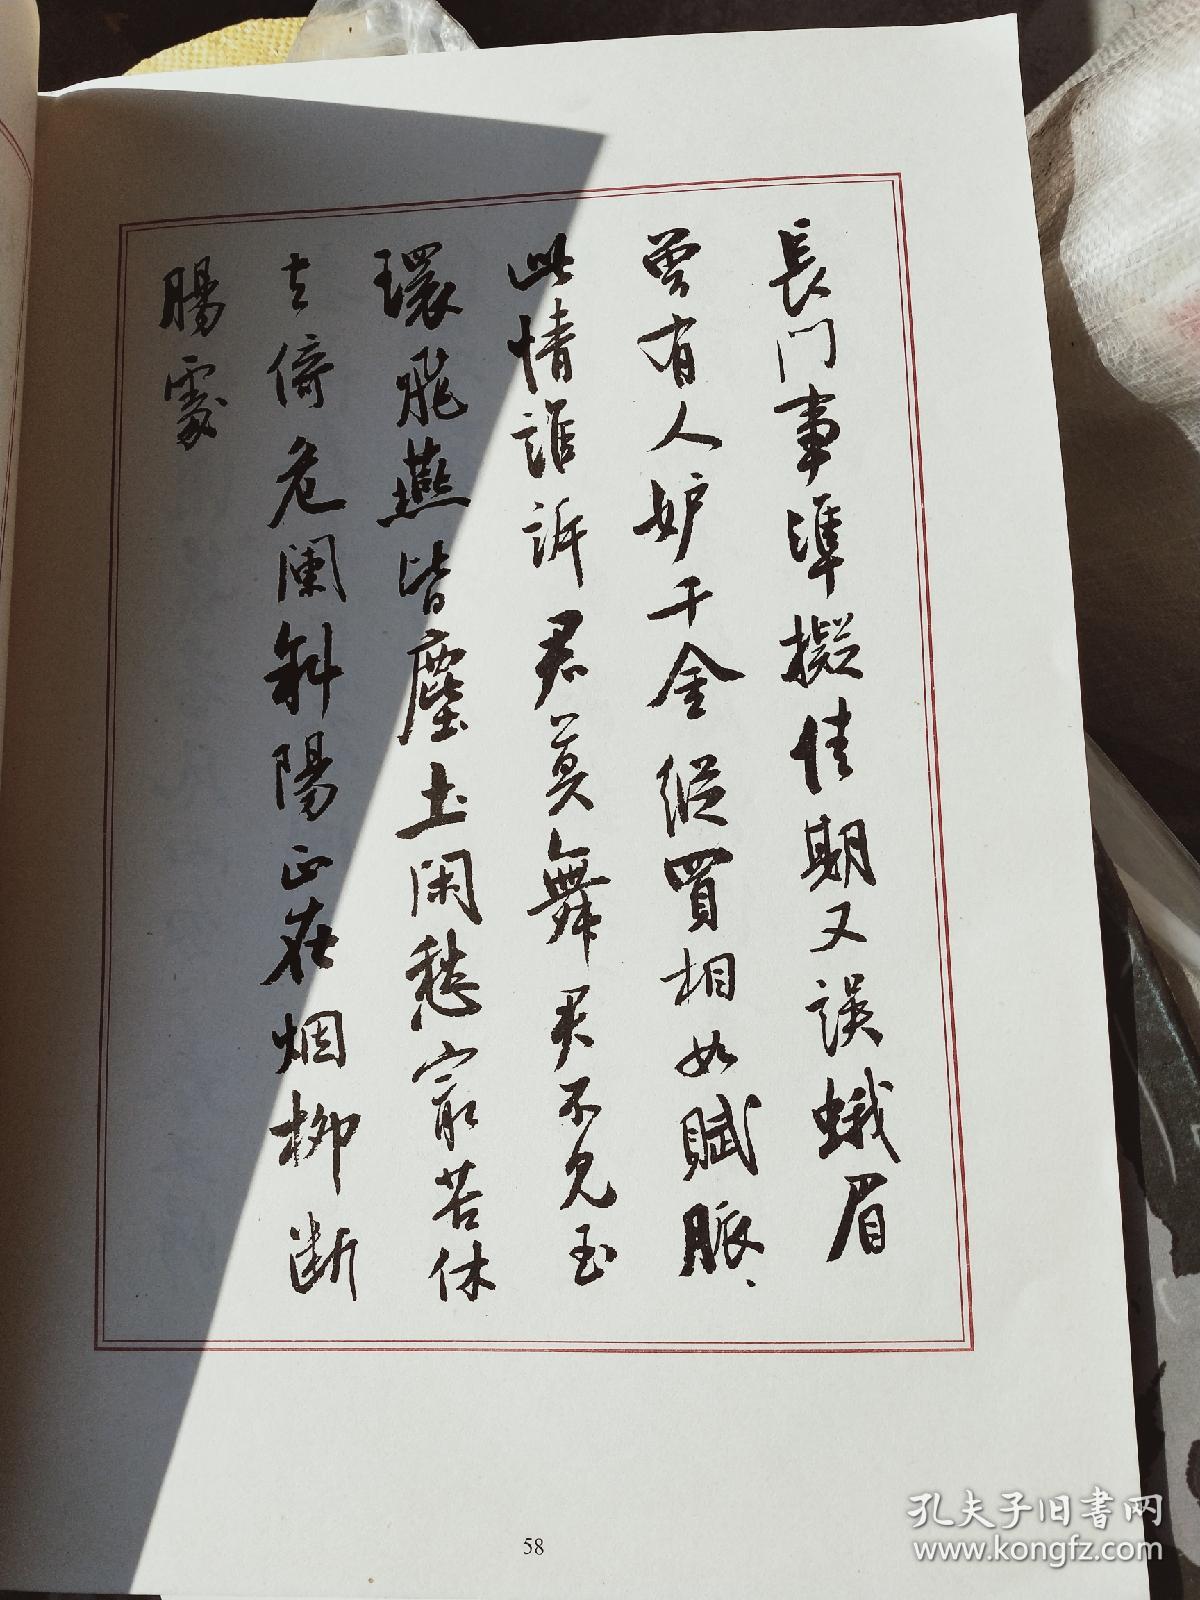 長門事準擬佳期又誤蛾眉
曾有人妒千金縱買相如賦脈、
此情誰訴君莫舞君不見玉
環飛燕皆塵土閑愁最苦休
去倚危闌斜陽正在烟柳斷
腸處
58
孔夫子旧书网
www.kongfz.com